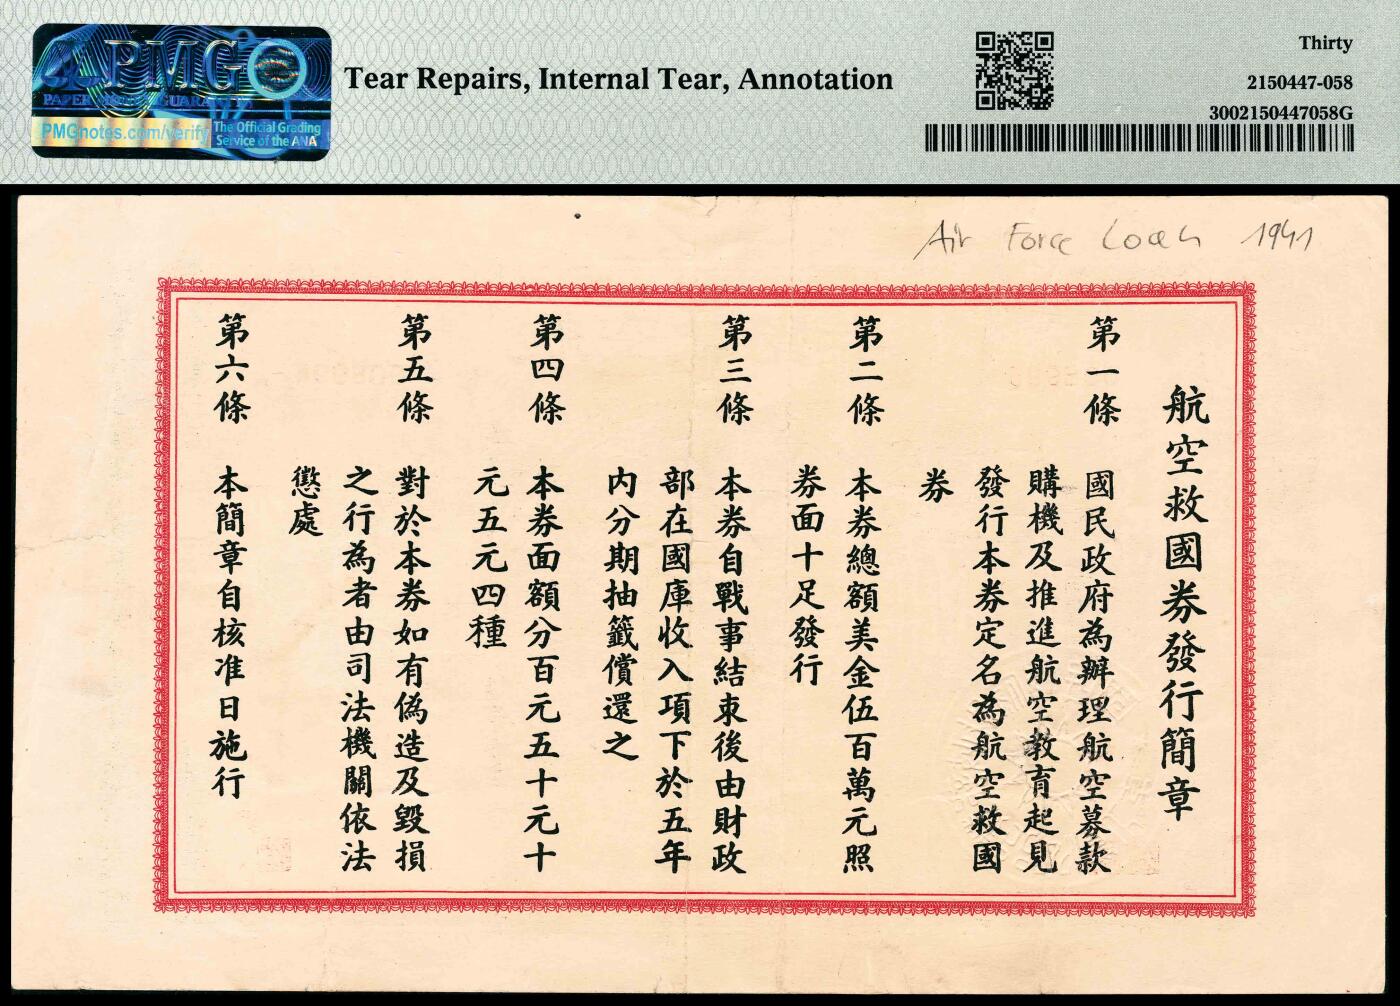 PMG
PAPER MONEY GUARANTY
PMGnotes.com/verify
The Official Grading
Service of the ANA
Tear Repairs, Internal Tear, Annotation
Thirty
2150447-058
3002150447058G
Air Force Loan 1941
航空救國券發行簡章
第一條 國民政府為辦理航空募款
購機及推進航空教育起見
發行本券定名為航空救國
券
第二條 本券總額美金伍百萬元照
券面十足發行
第三條 本券自戰事結束後由財政
部在國庫收入項下於五年
內分期抽籤償還之
第四條 本券面額分百元五十元十
元五元四種
第五條 對於本券如有偽造及毀損
之行為者由司法機關依法
懲處
第六條 本簡章自核准日施行